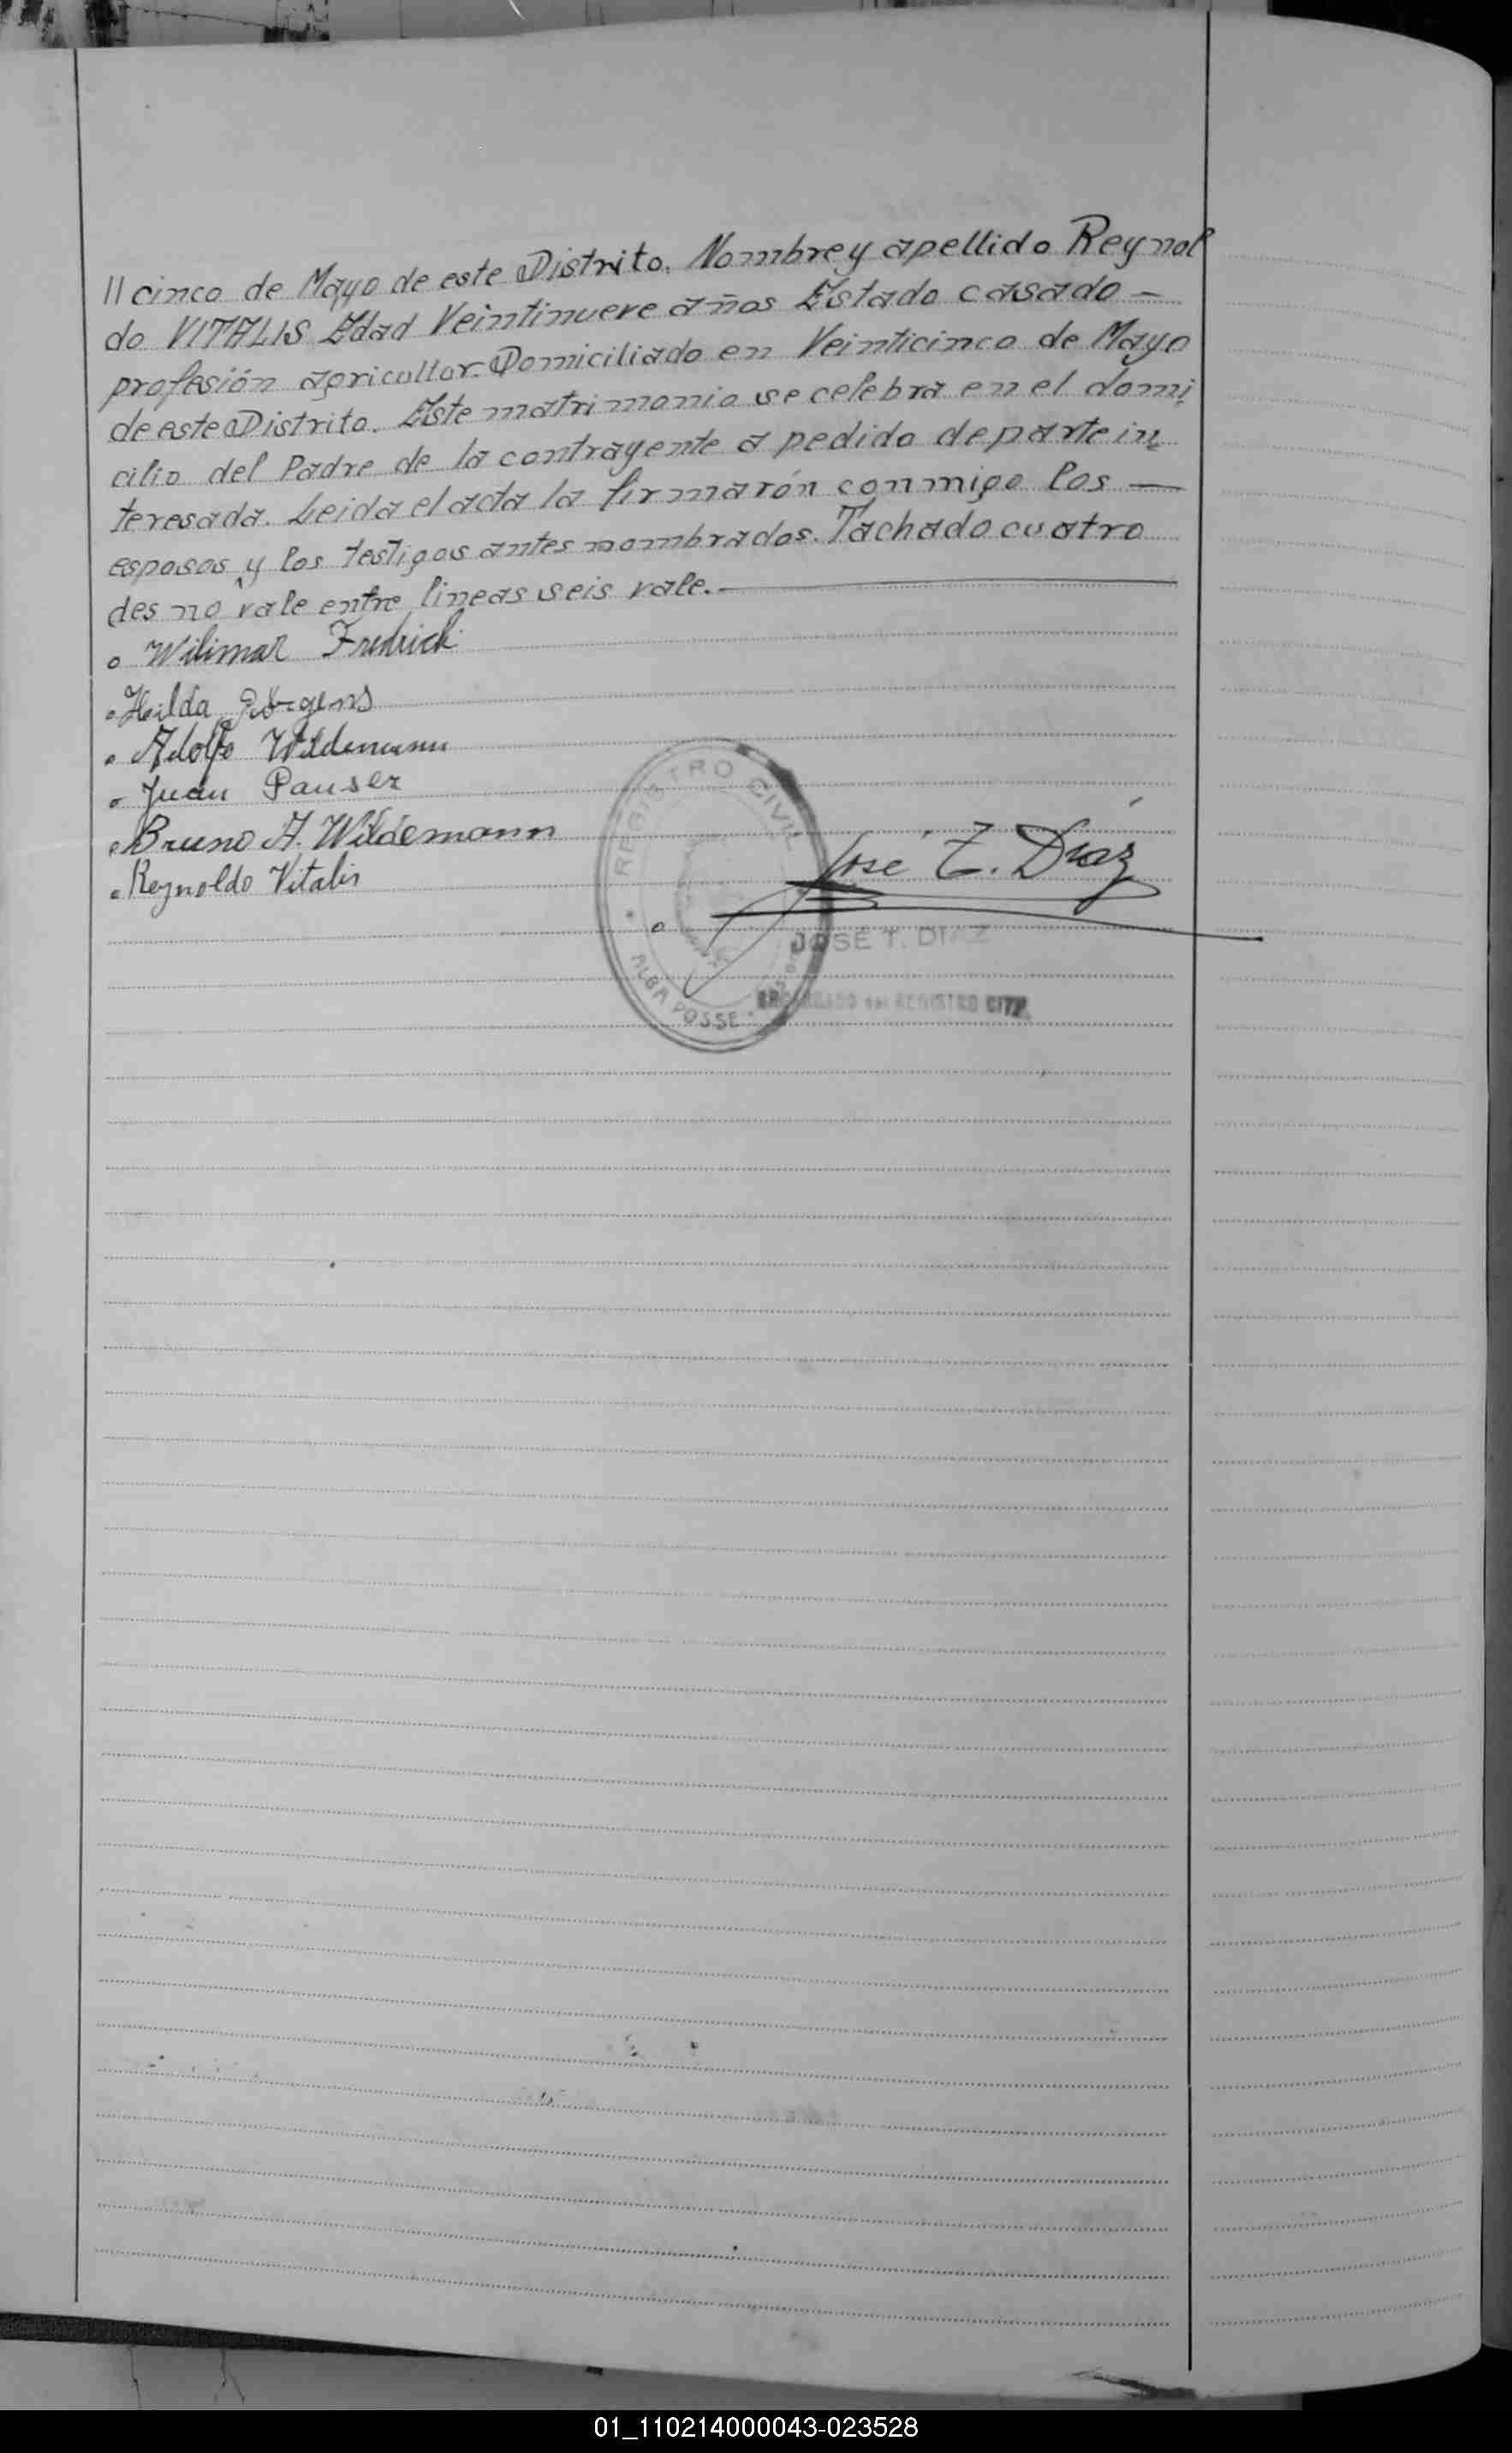 // cinco de Mayo de este Distrito. Nombre y apellido Reynol
do VITALIS Edad Veintinueve años Estado casado —
profesión agricultor. Domiciliado en Veinticinco de Mayo
de este Distrito. Este matrimonio se celebra en el domi
cilio del Padre de la contrayente a pedido de parte in
teresada. Leida el acta la firmarón conmigo los —
esposos y los testigos antes nombrados. Tachado cuatro
des no vale entre lineas seis vale. —
Wilimar Fredrich
Hilda Jörgens
Adolfo Wildemann
Juan Pauser
Bruno A. Wildemann
Reynoldo Vitalis
José T. Díaz
REGISTRO CIVIL
ALBA POSSE
JOSÉ T. DIAZ
ENCARGADO del REGISTRO CIVIL
01_110214000043-023528